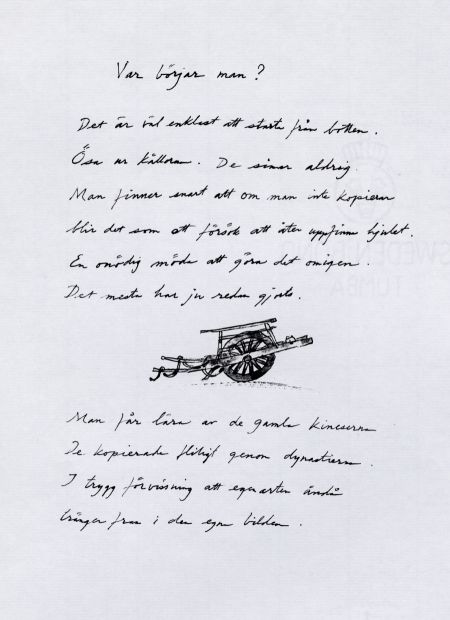 Var börjar man?
Det är väl enklast att starta från botten.
Ösa ur källorna. De sinar aldrig.
Man finner snart att om man inte kopierar
blir det som ett försök att åter uppfinna hjulet.
En onödig möda att göra det omigen.
Det mesta har ju redan gjorts.
Man får lära av de gamla kineserna
De kopierade flitigt genom dynastierna.
I trygg förvissning att egenarten ändå
tränger fram i den egna bilden.
SWEDEN
TUMBA